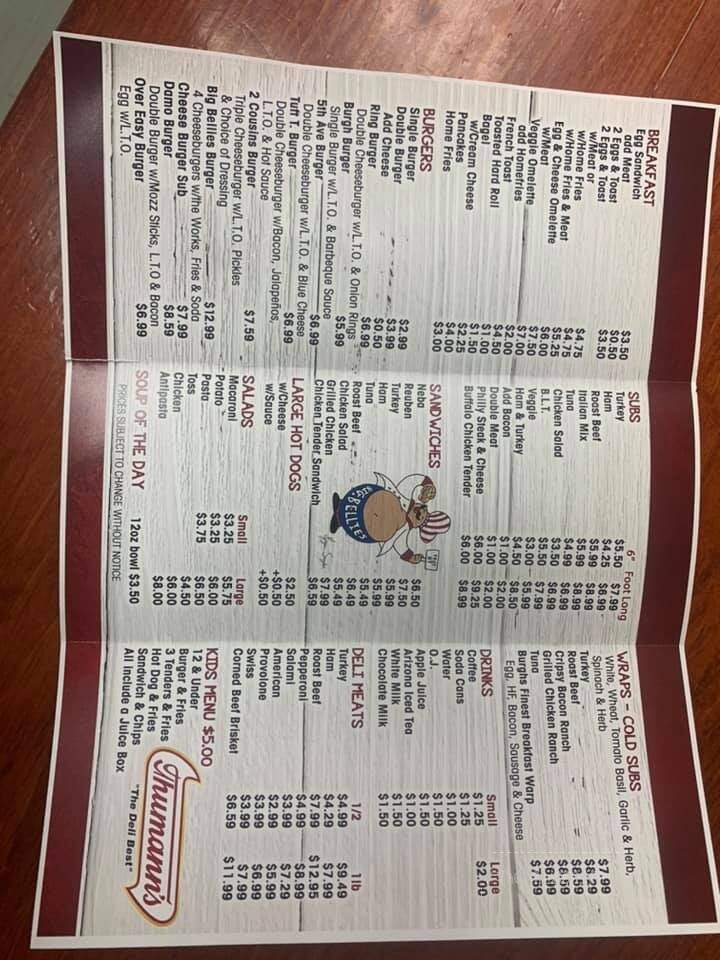 BREAKFAST
Egg Sandwich $3.50
add Meat $0.50
2 Eggs & Toast $3.50
2 Eggs & Toast
w/Meat or $4.75
w/Home Fries $4.75
w/Home Fries & Meat $5.25
Egg & Cheese Omelette $6.00
w/Meat $7.50
Veggie Omelette $7.00
add Homefries $2.00
French Toast $4.50
Toasted Hard Roll $1.00
Bagel $1.50
w/Cream Cheese $2.25
Pancakes $4.00
Home Fries $3.00
BURGERS
Single Burger $2.99
Double Burger $3.99
Add Cheese $0.50
Ring Burger $6.99
Double Cheeseburger w/L.T.O. & Onion Rings
Burgh Burger $5.99
Single Burger w/L.T.O. & Barbeque Sauce
5th Ave Burger $6.99
Double Cheeseburger w/L.T.O. & Blue Cheese
Tuff T. Burger $6.99
Double Cheeseburger w/Bacon, Jalapeños,
L.T.O. & Hot Sauce
2 Cousins Burger $7.59
Triple Cheeseburger w/L.T.O. Pickles
& Choice of Dressing
Big Bellies Burger $12.99
4 Cheeseburgers w/the Works, Fries & Soda
Cheese Burger Sub $7.99
Damo Burger $8.59
Double Burger w/Mozz Sticks, L.T.O & Bacon
Over Easy Burger $6.99
Egg w/L.T.O.
SUBS 6" Foot Long
Turkey $5.50 $7.99
Ham $4.25 $6.99
Roast Beef $5.99 $8.99
Italian Mix $5.99 $8.99
Tuna $4.99 $6.99
Chicken Salad $3.50 $6.99
B.L.T. $5.50 $7.99
Veggie $3.00 $5.99
Ham & Turkey $4.50 $8.50
Add Bacon $1.00 $2.00
Double Meat $1.50 $2.00
Philly Steak & Cheese $6.00 $9.25
Buffalo Chicken Tender $6.00 $8.99
SANDWICHES
Neba $6.50
Reuben $7.50
Turkey $5.99
Ham $5.99
Tuna $5.49
Roast Beef $6.49
Chicken Salad $5.49
Grilled Chicken $7.99
Chicken Tender Sandwich $6.59
BIG BELLIES
LARGE HOT DOGS $2.50
w/Cheese +$0.50
w/Sauce +$0.50
SALADS Small Large
Macaroni $3.25 $5.75
Potato $3.25 $6.00
Pasta $3.75 $6.50
Toss $4.50
Chicken $6.00
Antipasta $8.00
SOUP OF THE DAY 12oz bowl $3.50
PRICES SUBJECT TO CHANGE WITHOUT NOTICE
WRAPS - COLD SUBS
White, Wheat, Tomato Basil, Garlic & Herb,
Spinach & Herb
Turkey $7.99
Roast Beef $8.29
Cripsy Bacon Ranch $8.59
Grilled Chicken Ranch $8.59
Tuna $6.99
Burghs Finest Breakfast Warp $7.59
Egg, HF, Bacon, Sausage & Cheese
DRINKS Small Large
Coffee $1.25 $2.00
Soda Cans $1.25
Water $1.00
O.J. $1.50
Apple Juice $1.50
Arizona Iced Tea $1.00
White Milk $1.50
Chocolate Milk $1.50
DELI MEATS 1/2 1lb
Turkey $4.99 $9.49
Ham $4.29 $7.99
Roast Beef $7.99 $12.95
Pepperoni $4.99 $8.99
Salami $3.99 $7.29
American $2.99 $5.99
Provolone $3.99 $6.99
Swiss $3.99 $7.99
Corned Beef Brisket $6.59 $11.99
KIDS MENU $5.00
12 & Under
Burger & Fries
3 Tenders & Fries
Hot Dog & Fries
Sandwich & Chips
All include a Juice Box
Thumann's
"The Deli Best"